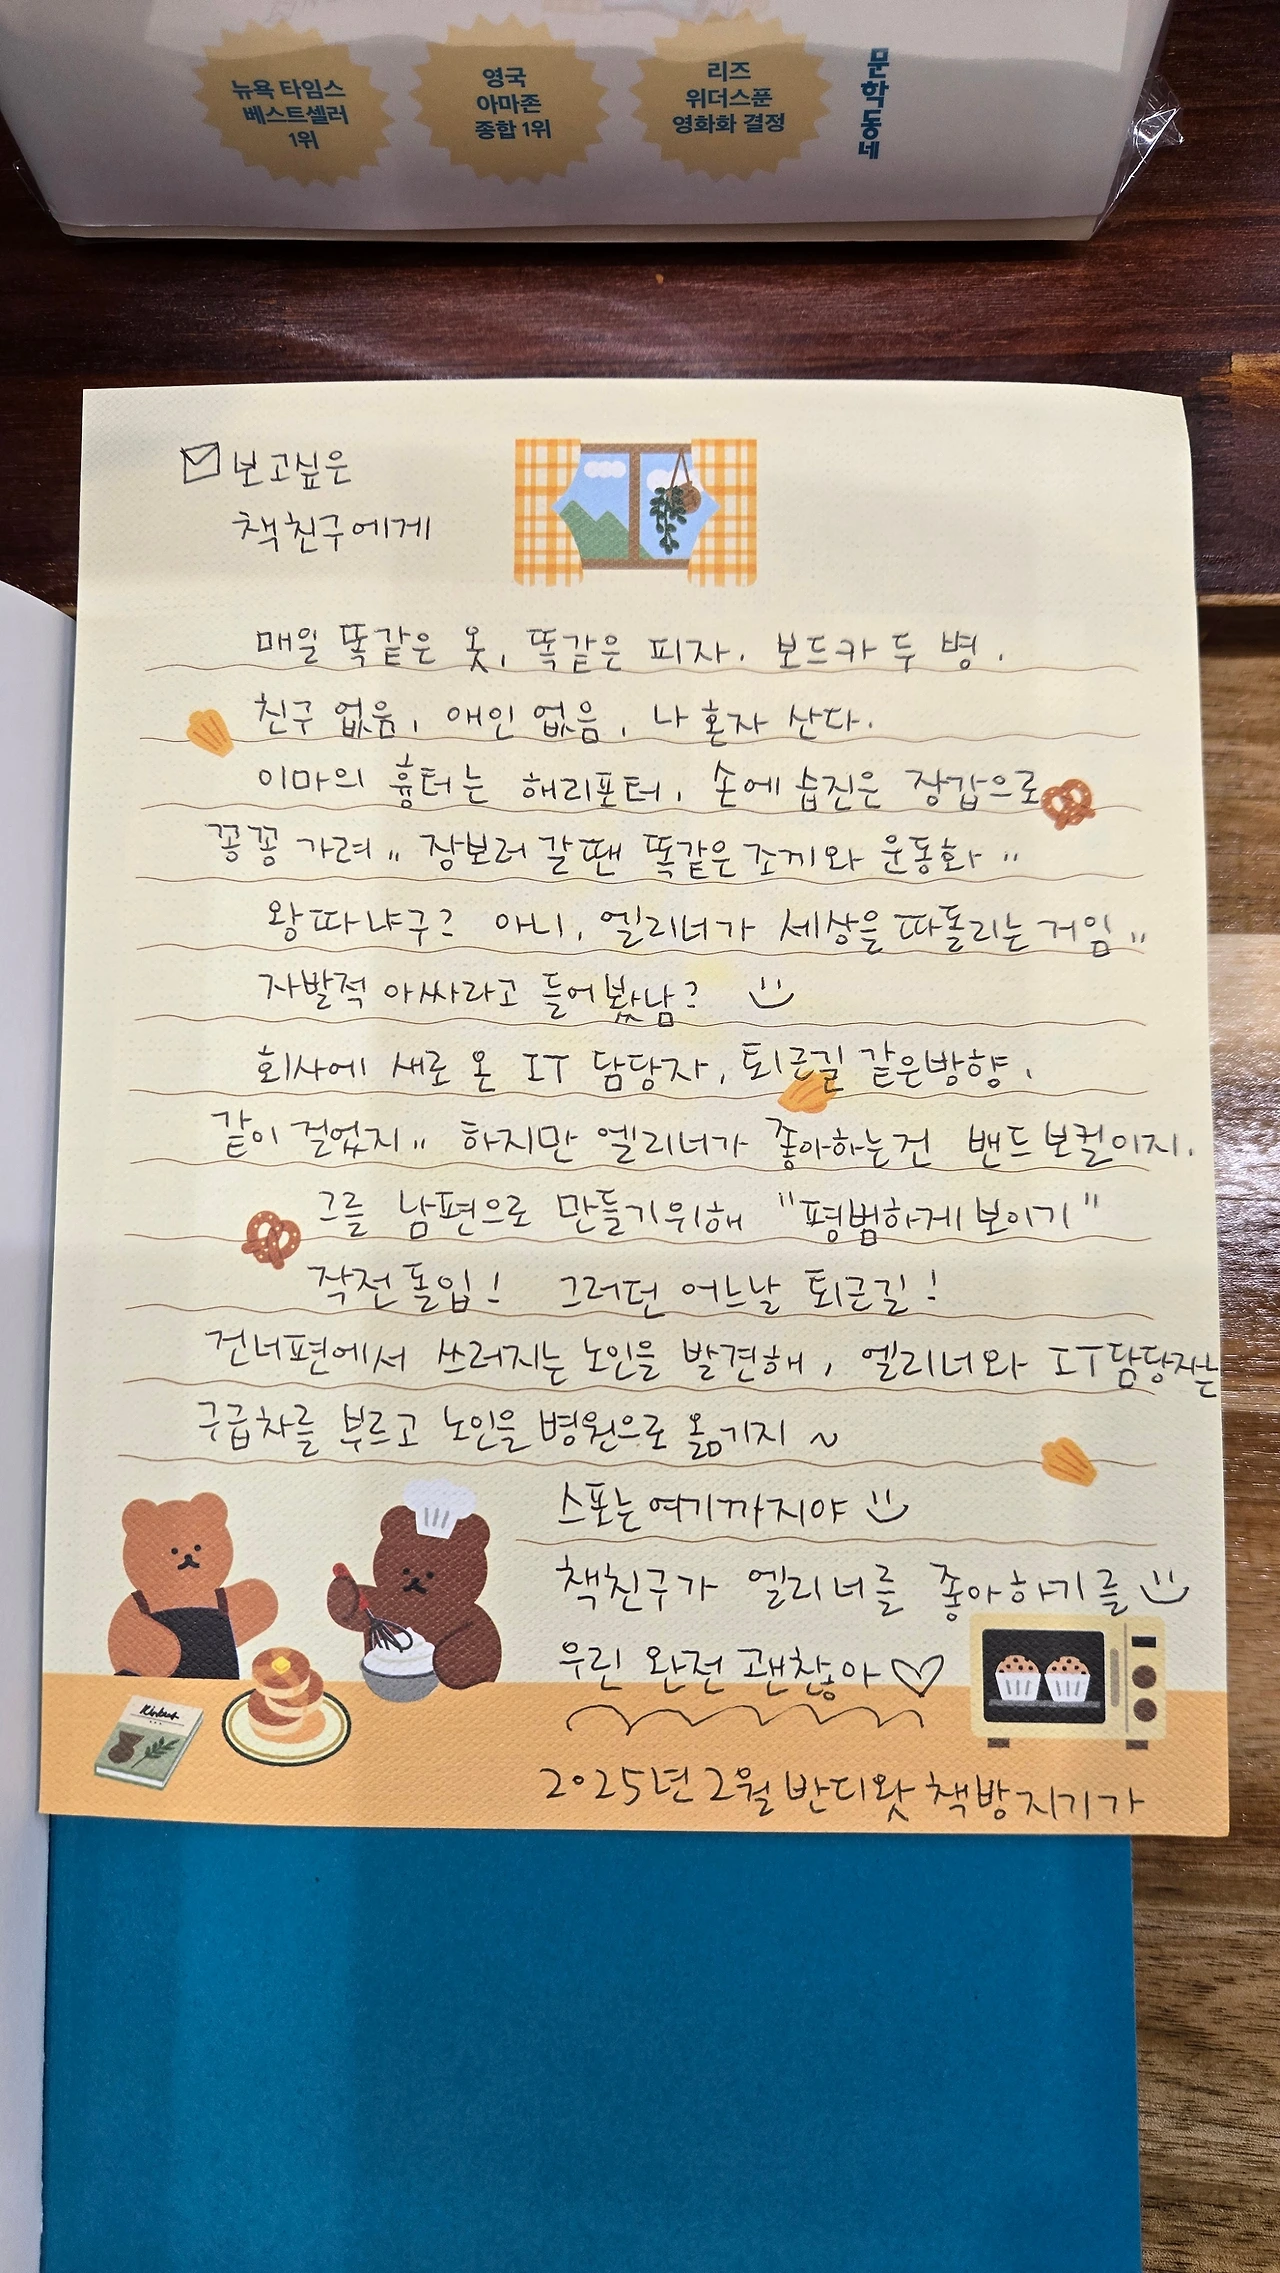 뉴욕 타임스
베스트셀러
1위
영국
아마존
종합 1위
리즈
위더스푼
영화화 결정
문학동네
보고싶은
책친구에게
매일 똑같은 옷, 똑같은 피자. 보드카 두 병.
친구 없음, 애인 없음, 나 혼자 산다.
이마의 흉터는 해리포터, 손에 습진은 장갑으로
꽁꽁 가려" 장보러 갈땐 똑같은 조끼와 운동화"
왕따냐구? 아니, 엘리너가 세상을 따돌리는 거임"
자발적 아싸라고 들어봤남?
회사에 새로 온 IT 담당자, 퇴근길 같은방향,
같이 걸었지" 하지만 엘리너가 좋아하는건 밴드보컬이지.
그를 남편으로 만들기위해 "평범하게 보이기"
작전돌입! 그러던 어느날 퇴근길!
건너편에서 쓰러지는 노인을 발견해, 엘리너와 IT담당자는
구급차를 부르고 노인을 병원으로 옮기지 ~
스포는 여기까지야
책친구가 엘리너를 좋아하기를
우린 완전 괜찮아♡
2025년 2월 반디왓 책방지기가